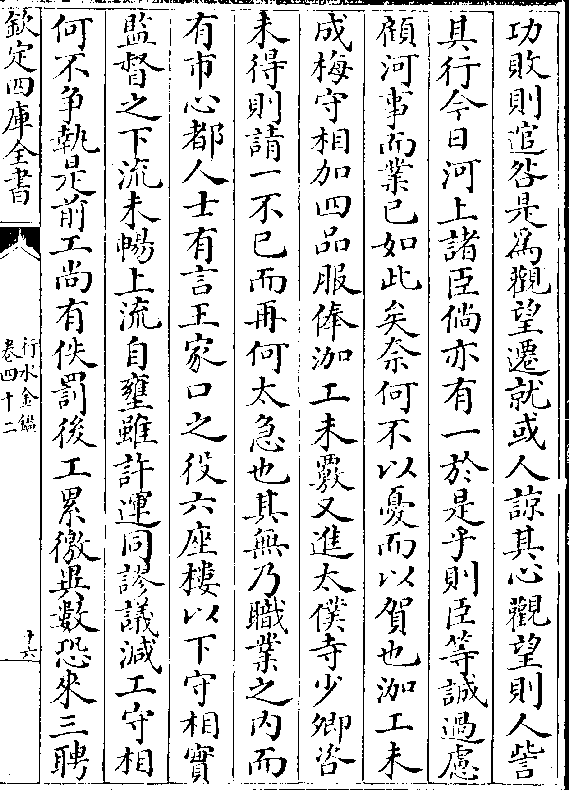 功敗則逭咎是爲觀望遷就或人諒其心觀望則人訾
其行今日河上諸臣倘亦有一於是乎則臣等誠過慮
顧河事而業已如此矣奈何不以憂而以賀也泇工未
成梅守相加四品服俸泇工未覈又進太僕寺少卿咨
未得則請一不已而再何太急也其無乃職業之内而
有市心都人士有言王家口之役六座樓以下守相實
監督之下流未暢上流自壅雖許運同謬議減工守相
何不争執是前工尚有佚罰後工累徼異數恐來三聘
欽定四庫全書
行水金鑑
卷四十二
十六